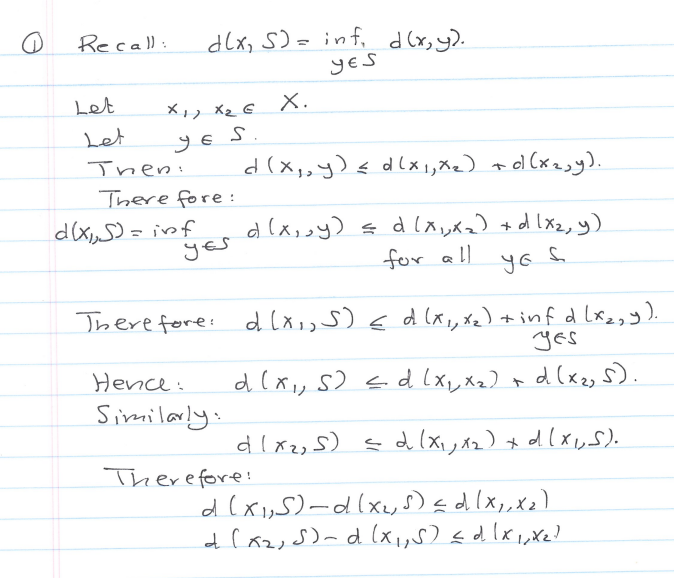 ① Recall: d(x, S) = inf, d(x,y).
y∈S
Let x₁, x₂ ∈ X.
Let y ∈ S.
Then: d(x₁,y) ≤ d(x₁,x₂) + d(x₂,y).
Therefore:
d(x₁,S) = inf d(x₁,y) ≤ d(x₁,x₂) + d(x₂,y)
y∈S for all y∈ S
Therefore: d(x₁,S) ≤ d(x₁,x₂) + inf d(x₂,y).
y∈S
Hence: d(x₁,S) ≤ d(x₁,x₂) + d(x₂,S).
Similarly:
d(x₂,S) ≤ d(x₁,x₂) + d(x₁,S).
Therefore:
d(x₁,S) - d(x₂,S) ≤ d(x₁,x₂)
d(x₂,S) - d(x₁,S) ≤ d(x₁,x₂)